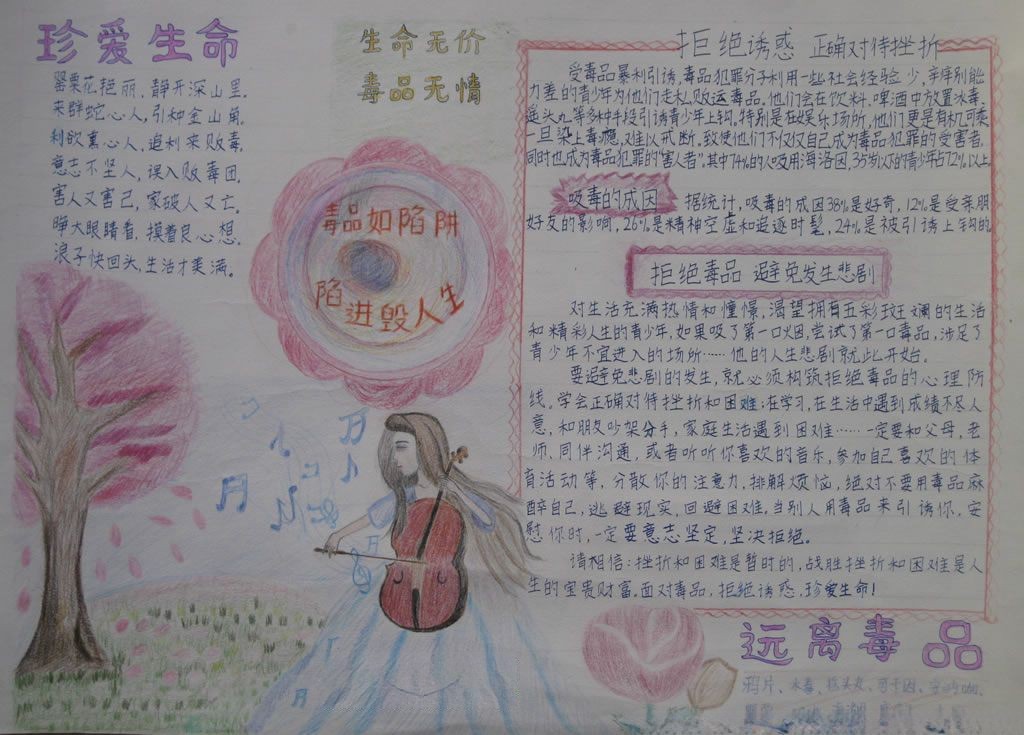 珍爱生命
罂栗花艳丽,静开深山里.
来群蛇心人,引种金山角.
利欲熏心人,追利来贩毒.
意志不坚人,误入贩毒团.
害人又害己,家破人又亡.
睁大眼睛看,摸着良心想.
浪子快回头,生活才美满。
生命无价
毒品无情
毒品如陷阱
陷进毁人生
拒绝诱惑 正确对待挫折
受毒品暴利引诱,毒品犯罪分子利用一些社会经验少,辨别能
力差的青少年为他们走私贩运毒品。他们会在饮料、啤酒中放置冰毒、
摇头丸等多种手段引诱青少年上钩。特别是在娱乐场所,他们更是有机可乘
一旦染上毒瘾,难以戒断,致使他们不仅仅自己成为毒品犯罪的受害者,
同时也成为毒品犯罪的"害人者".其中74%的人吸用海洛因,35岁以下的青少年占72%以上
吸毒的成因
据统计,吸毒的成因38%是好奇,12%是受亲朋
好友的影响,26%是精神空虚和追逐时髦,24%是被引诱上钩的
拒绝毒品 避免发生悲剧
对生活充满热情和憧憬,渴望拥有五彩斑斓的生活
和精彩人生的青少年,如果吸了第一口烟,尝试了第一口毒品,涉足了
青少年不宜进入的场所……他的人生悲剧就此开始。
要避免悲剧的发生,就必须构筑拒绝毒品的心理防
线。学会正确对待挫折和困难;在学习,在生活中遇到成绩不尽人
意,和朋友吵架分手,家庭生活遇到困难……一定要和父母,老
师、同伴沟通,或者听听你喜欢的音乐,参加自己喜欢的体
育活动等,分散你的注意力,排解烦恼,绝对不要用毒品麻
醉自己,逃避现实,回避困难,当别人用毒品来引诱你,安
慰你时,一定要意志坚定,坚决拒绝。
请相信:挫折和困难是暂时的,战胜挫折和困难是人
生的宝贵财富.面对毒品,拒绝诱惑,珍爱生命!
远离毒品
鸦片、冰毒、摇头丸、可卡因、